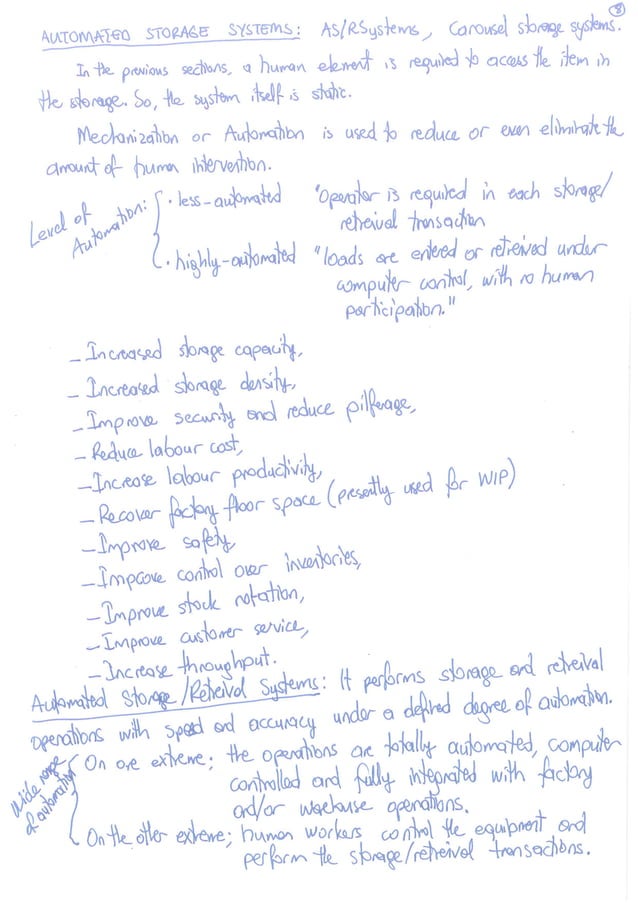 8
AUTOMATED STORAGE SYSTEMS: AS/RSystems, Carousel storage systems.
In the previous sections, a human element is required to access the item in
the storage. So, the system itself is static.
Mechanization or Automation is used to reduce or even eliminate the
amount of human intervention.
Level of Automation:
· less-automated "Operator is required in each storage/
retreival transaction
· highly-automated "loads are entered or retreived under
computer control, with no human
participation."
- Increased storage capacity,
- Increased storage density,
- Improve security and reduce pilferage,
- Reduce labour cost,
- Increase labour productivity,
- Recover factory floor space (presently used for WIP)
- Improve safety,
- Improve control over inventories,
- Improve stock rotation,
- Improve customer service,
- Increase throughput.
Automated Storage/Retreival Systems: It performs storage and retreival
operations with speed and accuracy under a defined degree of automation.
Wide range
of automation
On one extreme; the operations are totally automated, computer
controlled and fully integrated with factory
and/or warehouse operations.
On the other extreme; human workers control the equipment and
perform the storage/retreival transactions.